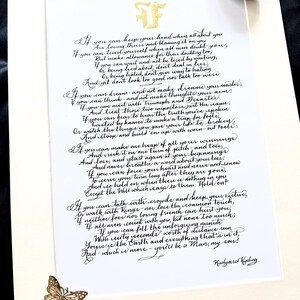 IF
If you can keep your head when all about you
Are losing theirs and blaming it on you,
If you can trust yourself when all men doubt you,
But make allowance for their doubting too;
If you can wait and not be tired by waiting,
Or being lied about, don't deal in lies,
Or being hated, don't give way to hating,
And yet don't look too good, nor talk too wise:
If you can dream - and not make dreams your master;
If you can think - and not make thoughts your aim;
If you can meet with Triumph and Disaster
And treat those two impostors just the same;
If you can bear to hear the truth you've spoken
Twisted by knaves to make a trap for fools,
Or watch the things you gave your life to, broken,
And stoop and build 'em up with worn-out tools:
If you can make one heap of all your winnings
And risk it on one turn of pitch-and-toss,
And lose, and start again at your beginnings
And never breathe a word about your loss;
If you can force your heart and nerve and sinew
To serve your turn long after they are gone,
And so hold on when there is nothing in you
Except the Will which says to them: 'Hold on!'
If you can talk with crowds and keep your virtue,
Or walk with Kings - nor lose the common touch,
If neither foes nor loving friends can hurt you,
If all men count with you, but none too much;
If you can fill the unforgiving minute
With sixty seconds' worth of distance run,
Yours is the Earth and everything that's in it,
And - which is more - you'll be a Man, my son!
Rudyard Kipling